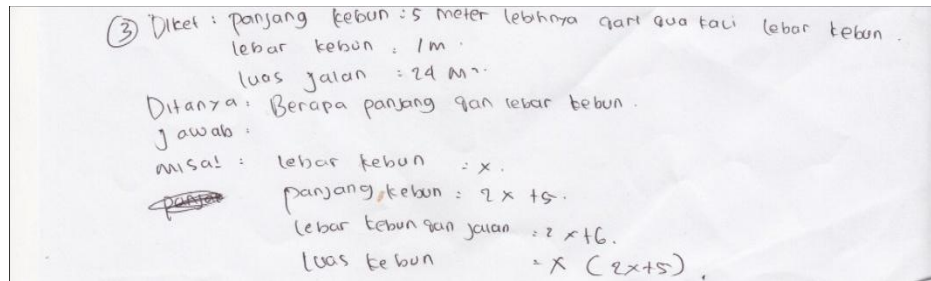 ③ Diket : panjang kebun : 5 meter lebihnya dari dua kali lebar kebun .
lebar kebun : 1 m .
luas jalan : 24 m².
Ditanya : Berapa panjang dan lebar kebun .
Jawab :
misal : lebar kebun : x .
panjang kebun : 2x +5 .
lebar kebun dan jalan : 2x+6 .
luas kebun = x (2x+5) .